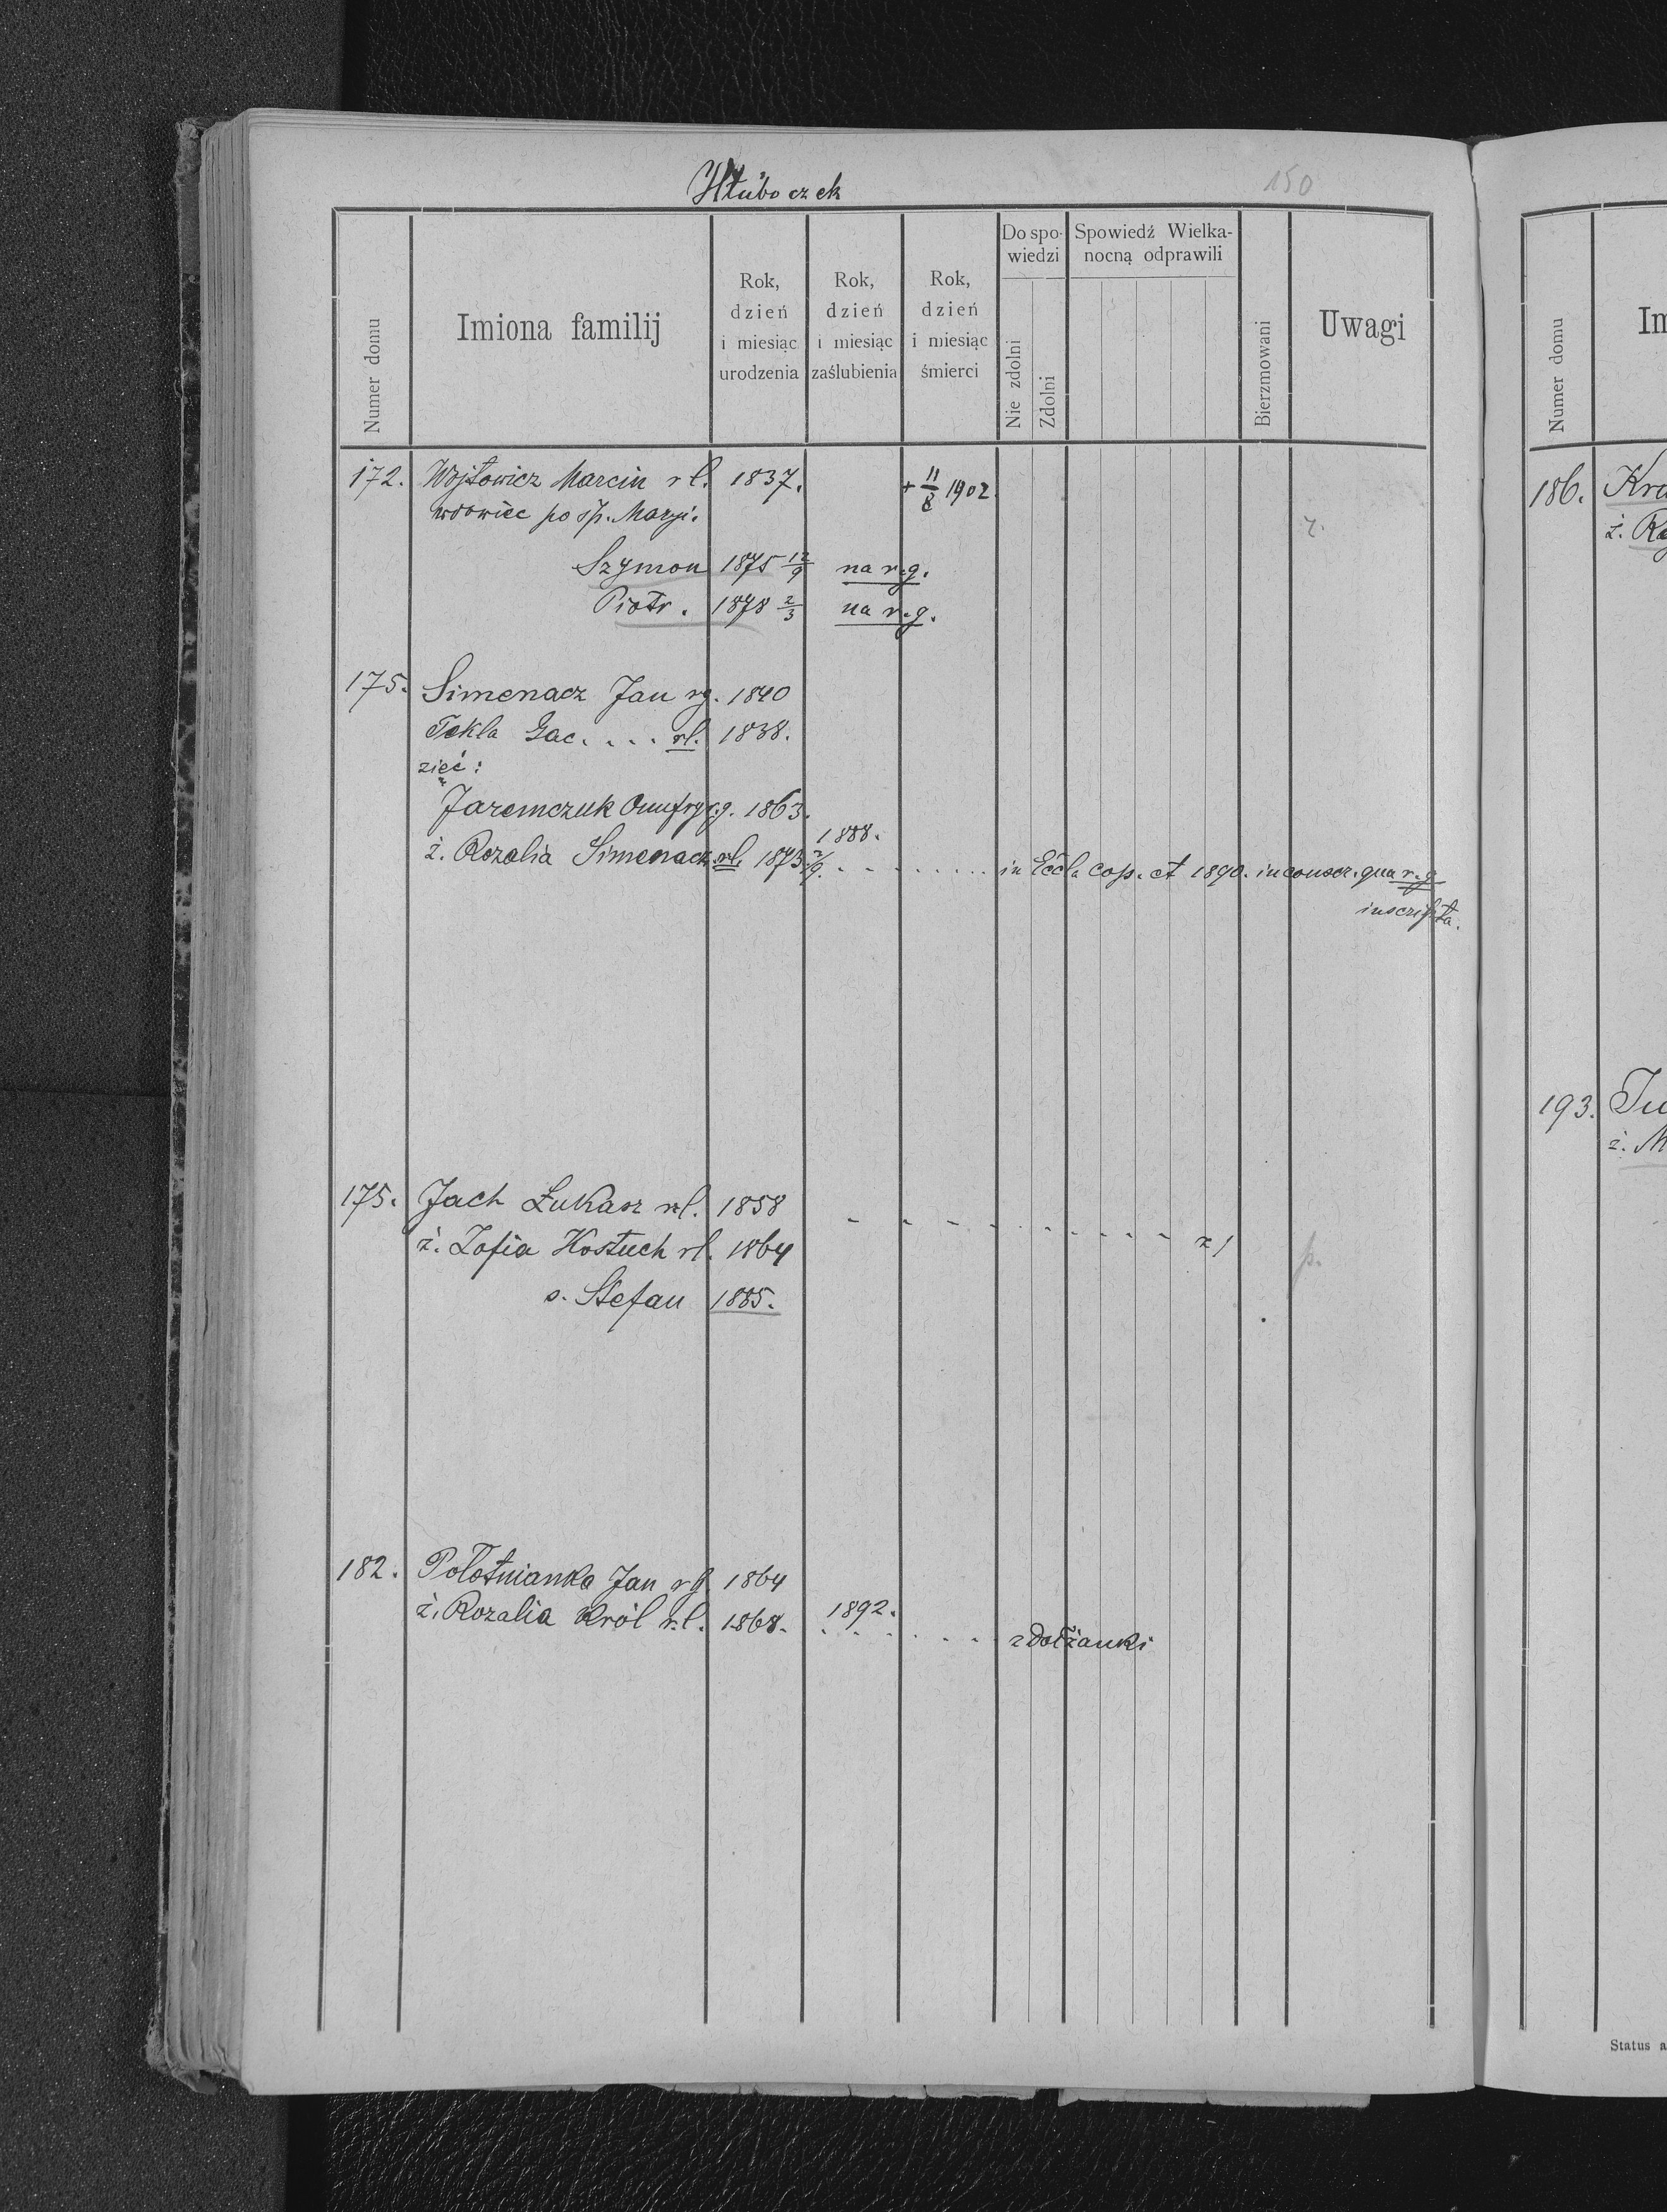 Hłuboczek
150
Numer domu
Imiona familij
Rok, dzień i miesiąc urodzenia
Rok, dzień i miesiąc zaślubienia
Rok, dzień i miesiąc śmierci
Do spowiedzi
Nie zdolni
Zdolni
Spowiedź Wielkanocną odprawili
Bierzmowani
Uwagi
172. Wojtowicz Marcin r l. 1837. + 11/8 1902.
wdowiec po śp. Maryi.
Szymon 1875 12/9 na r.g.
Piotr. 1878 2/3 na r.g.
175. Simenacz Jan rg. 1840
Tekla Gac.... rl. 1838.
zięć:
Jaremczuk Onufry r.g. 1863.
1888.
ż. Rozalia Simenacz rl. 1873 2/9. in Eccla cop. et 1890. in conscr. qua r.g
inscripta.
175. Jach Łukasz rl. 1858
ż. Zofia Kostuch rl. 1864 z/
p.
s. Stefan 1885.
182. Połotnianka Jan rg 1864
ż. Rozalia Król r.l. 1868. 1892. z Dołżanki
Numer domu
Im
186. Kra
ż. Ro
193. Tu
ż. M
Status a